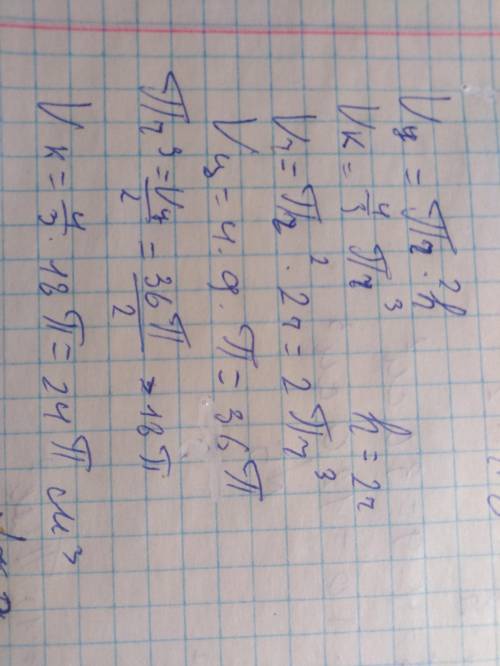 Vц = πr²·h
Vк = 4/3 πr³ h = 2r
Vц = πr²·2r = 2πr³
Vц = 4·9·π = 36π
πr³ = Vц/2 = 36π/2 = 18π
Vк = 4/3·18π = 24π м³